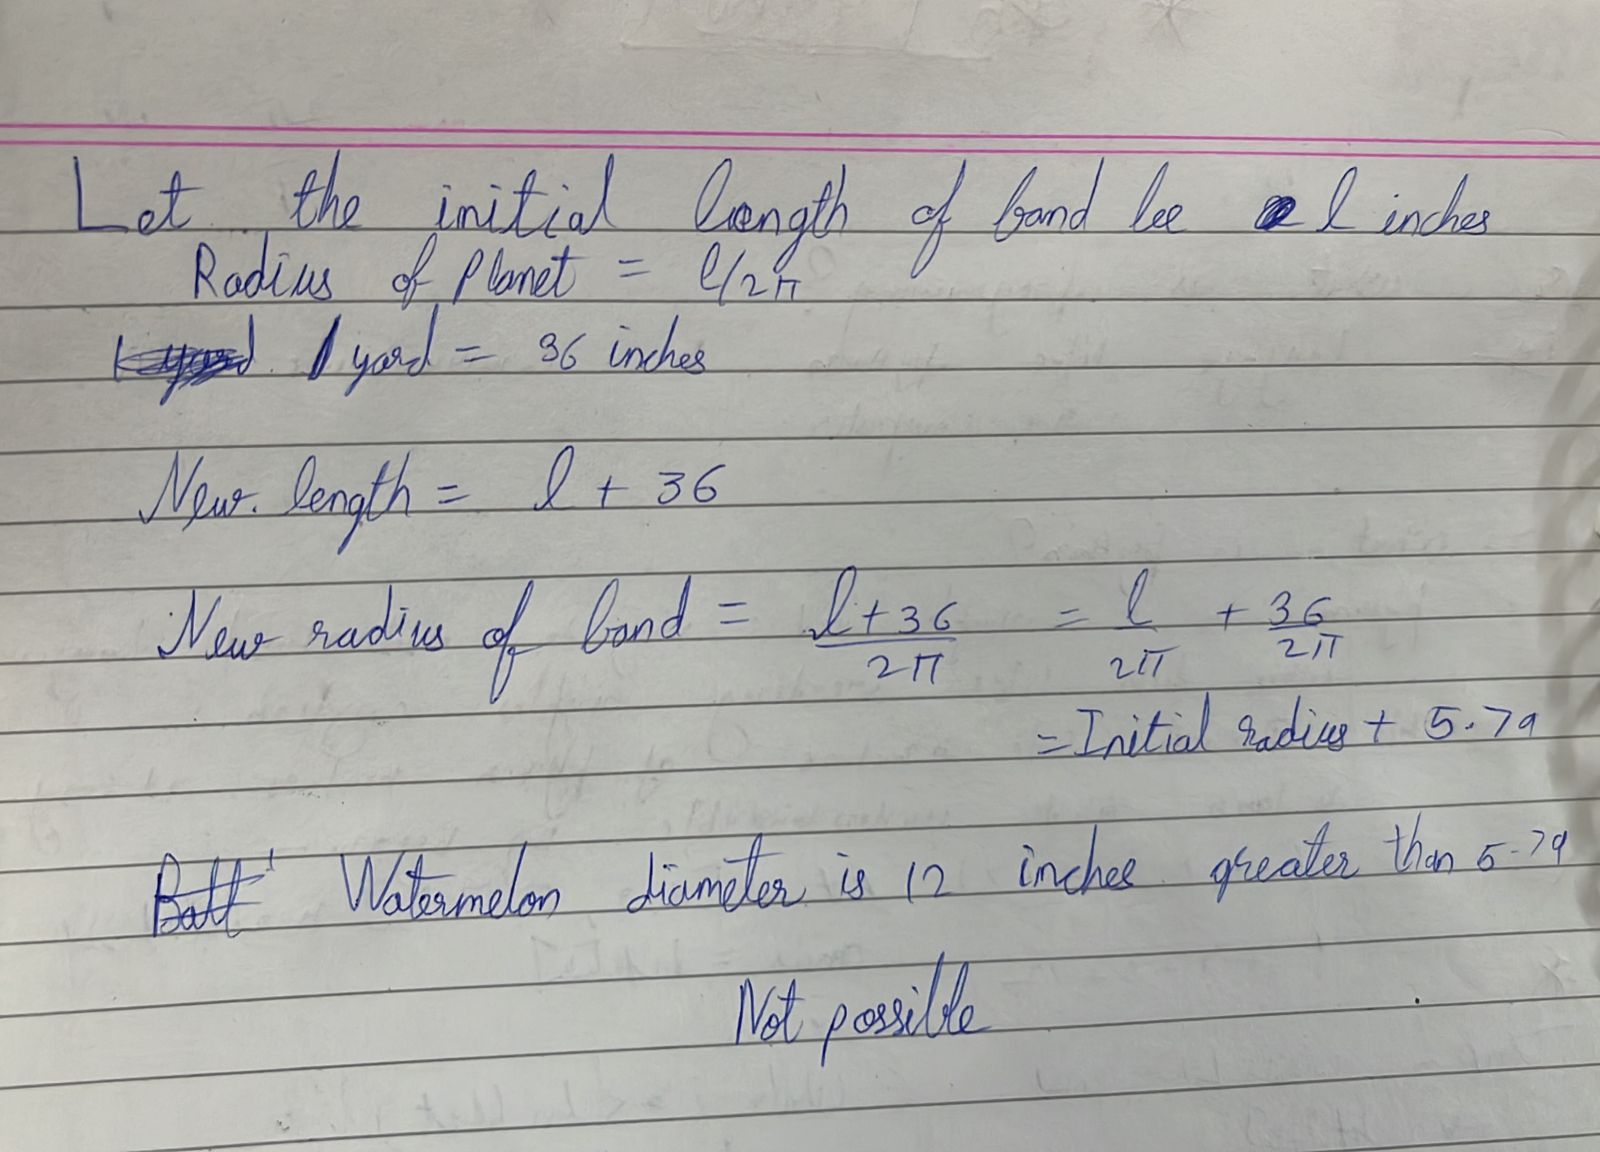 Let the initial length of band be l inches
Radius of Planet = l/2π
1 yard = 36 inches
New. length = l + 36
New radius of band = l+36/2π = l/2π + 36/2π
= Initial radius + 5.79
Watermelon diameter is 12 inches greater than 5.79
Not possible